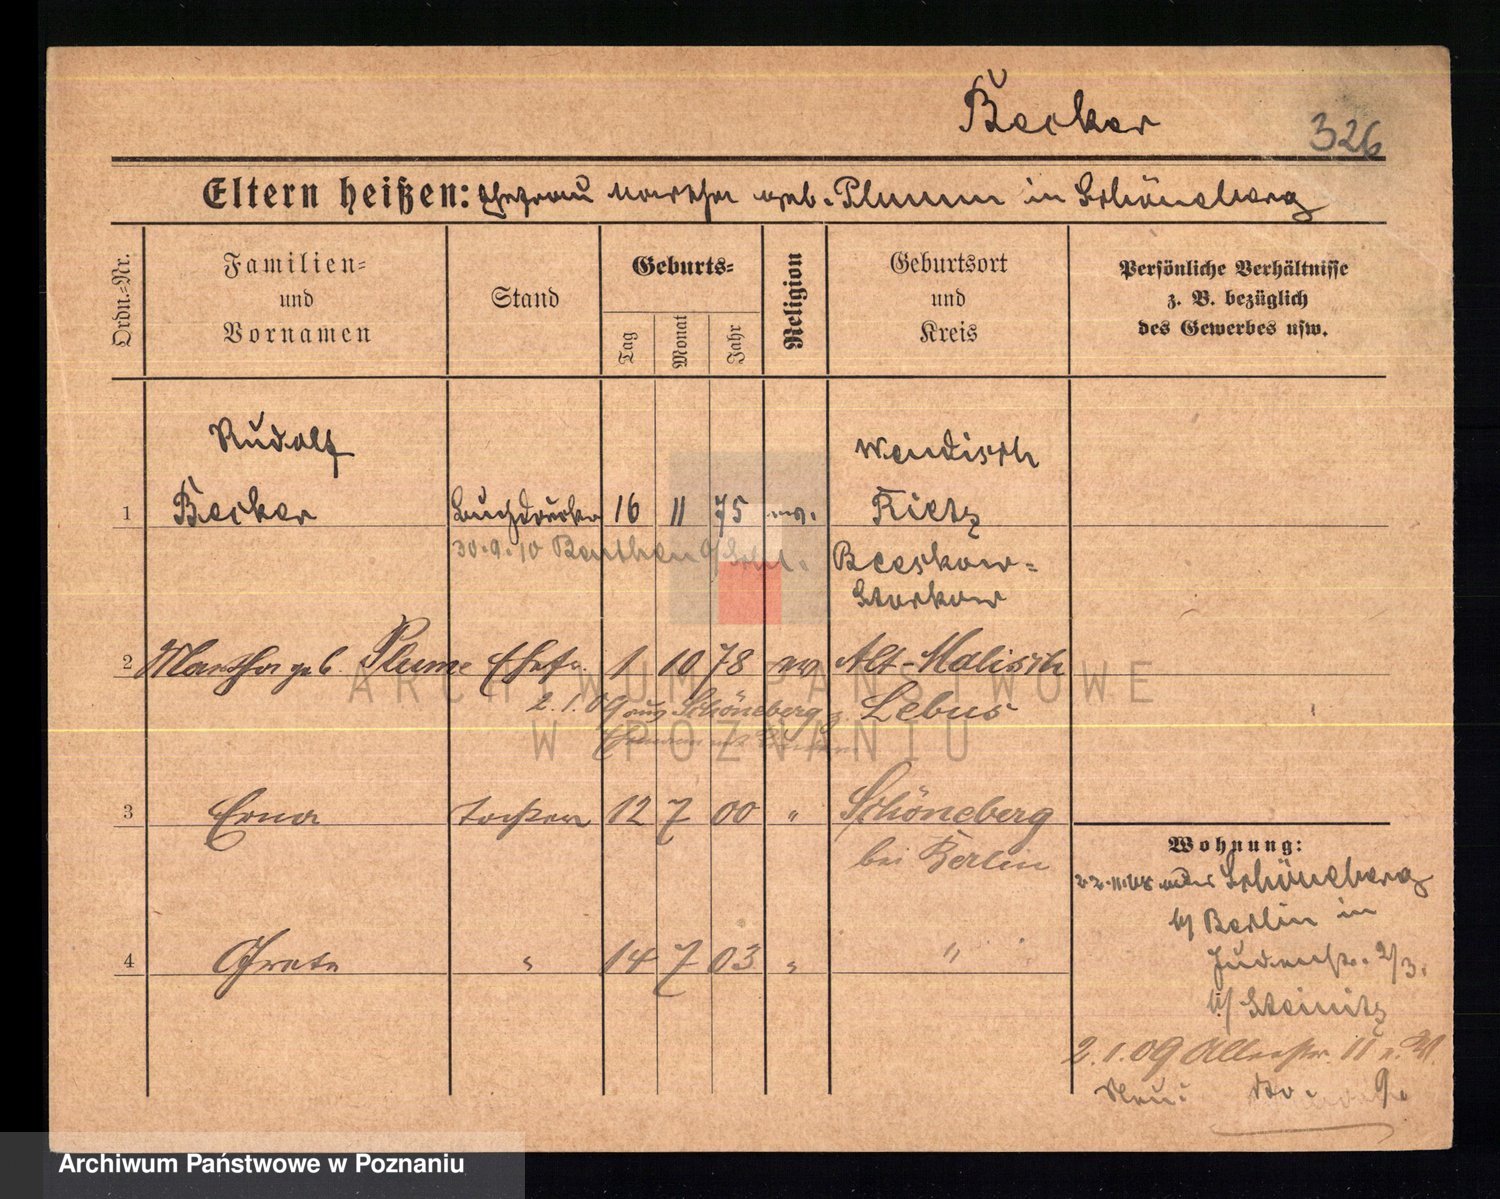 Becker
326
Eltern heißen: Ehefrau Martha geb. Plumm in Schöneberg
Ordn.=Nr.
Familien=
und
Vornamen
Stand
Geburts=
Tag
Monat
Jahr
Religion
Geburtsort
und
Kreis
Persönliche Verhältnisse
z. B. bezüglich
des Gewerbes usw.
Rudolf
Wendisch
1 Becker Buchdrucker 16 11 75 ev. Rietz
30.9.10 Beuthen o/Schl. Beeskow=
Storkow
2 Martha geb. Plume Ehefr. 1 10 78 ev Alt-Malisch
2.1.09 aus Schöneberg Lebus
3 Erna Tochter 12 7 00 " Schöneberg
bei Berlin
Wohnung:
Schöneberg
b/ Berlin in
4 Grete " 14 7 03 " "
Judenstr. 2/3.
b/ Steinitz
2.1.09
Neu:
ARCHIWUM PAŃSTWOWE
W POZNANIU
Archiwum Państwowe w Poznaniu